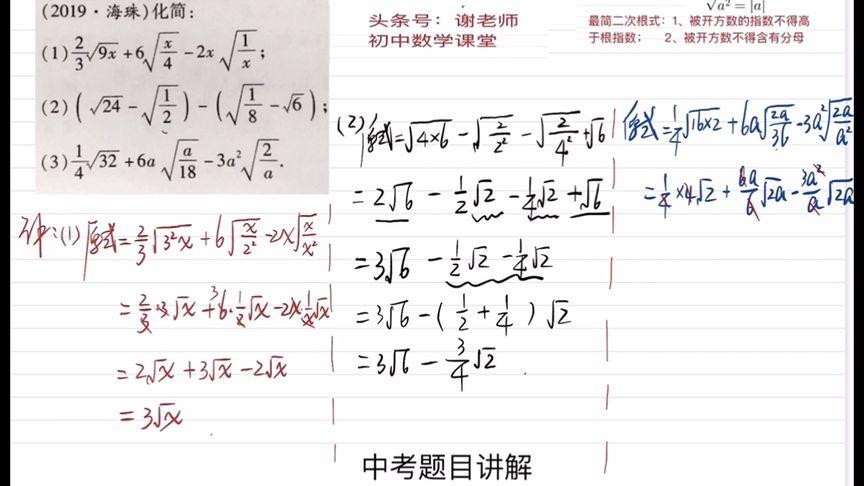 (2019·海珠)化简:
(1) 2/3√9x + 6√(x/4) − 2x√(1/x);
(2) (√24 − √(1/2)) − (√(1/8) − √6);
(3) 1/4√32 + 6a√(a/18) − 3a²√(2/a).
头条号:谢老师
初中数学课堂
√a² = |a|
最简二次根式:1、被开方数的指数不得高
于根指数; 2、被开方数不得含有分母
解:(1)原式=2/3√(3²x) + 6√(x/2²) − 2x√(x/x²)
=2/3·3√x + 6·1/2√x − 2x·1/x√x
=2√x + 3√x − 2√x
=3√x
(2)原式=√(4×6) − √(2/2²) − √(2/4²) + √6
=2√6 − 1/2√2 − 1/4√2 + √6
=3√6 − 1/2√2 − 1/4√2
=3√6 − (1/2 + 1/4)√2
=3√6 − 3/4√2
原式=1/4√(16×2) + 6a√(2a/36) − 3a²√(2a/a²)
=1/4×4√2 + 6a/6√2a − 3a²/a√2a
中考题目讲解